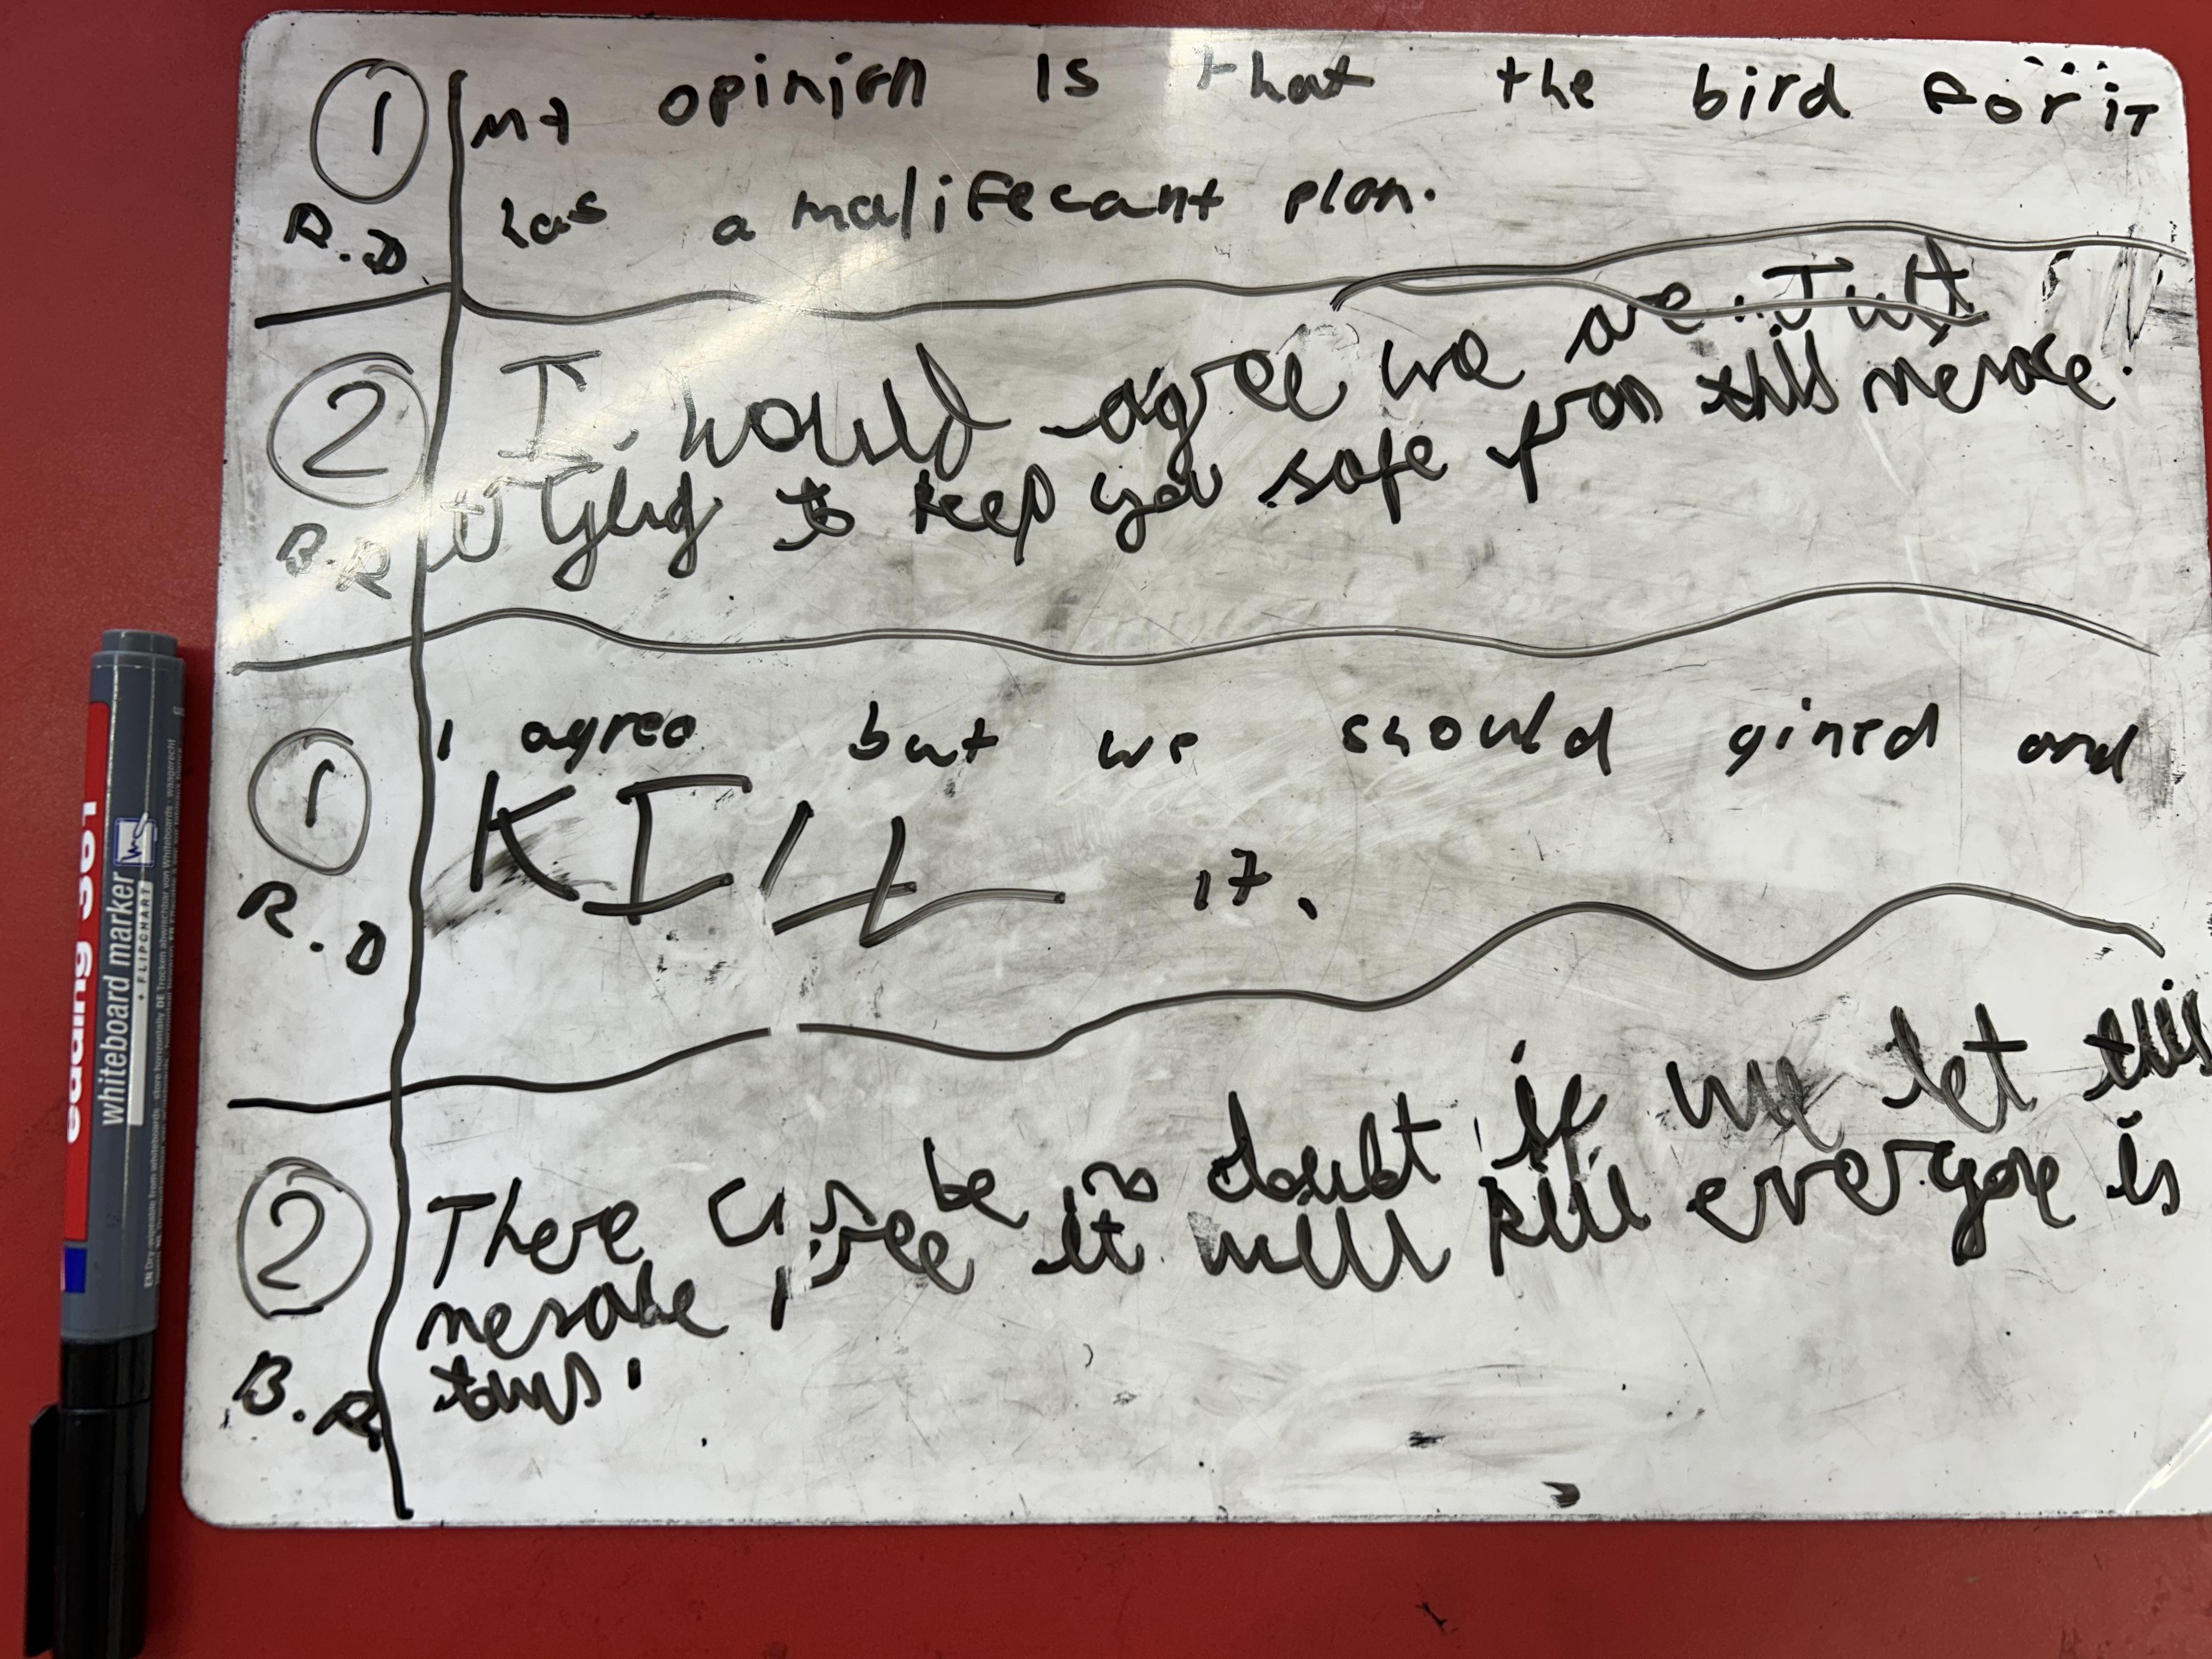 1 My opinion is that the bird for it
R.D has a malifecant plan.
2 I would agree we are Just
B.R trying to keep you safe from this menace.
1 I agree but we should gined and
R.D KILL it.
2 There can be no doubt if we let this
menace free it will kill everyone in
B.R town.
edding 361
whiteboard marker
+ FLIPCHART